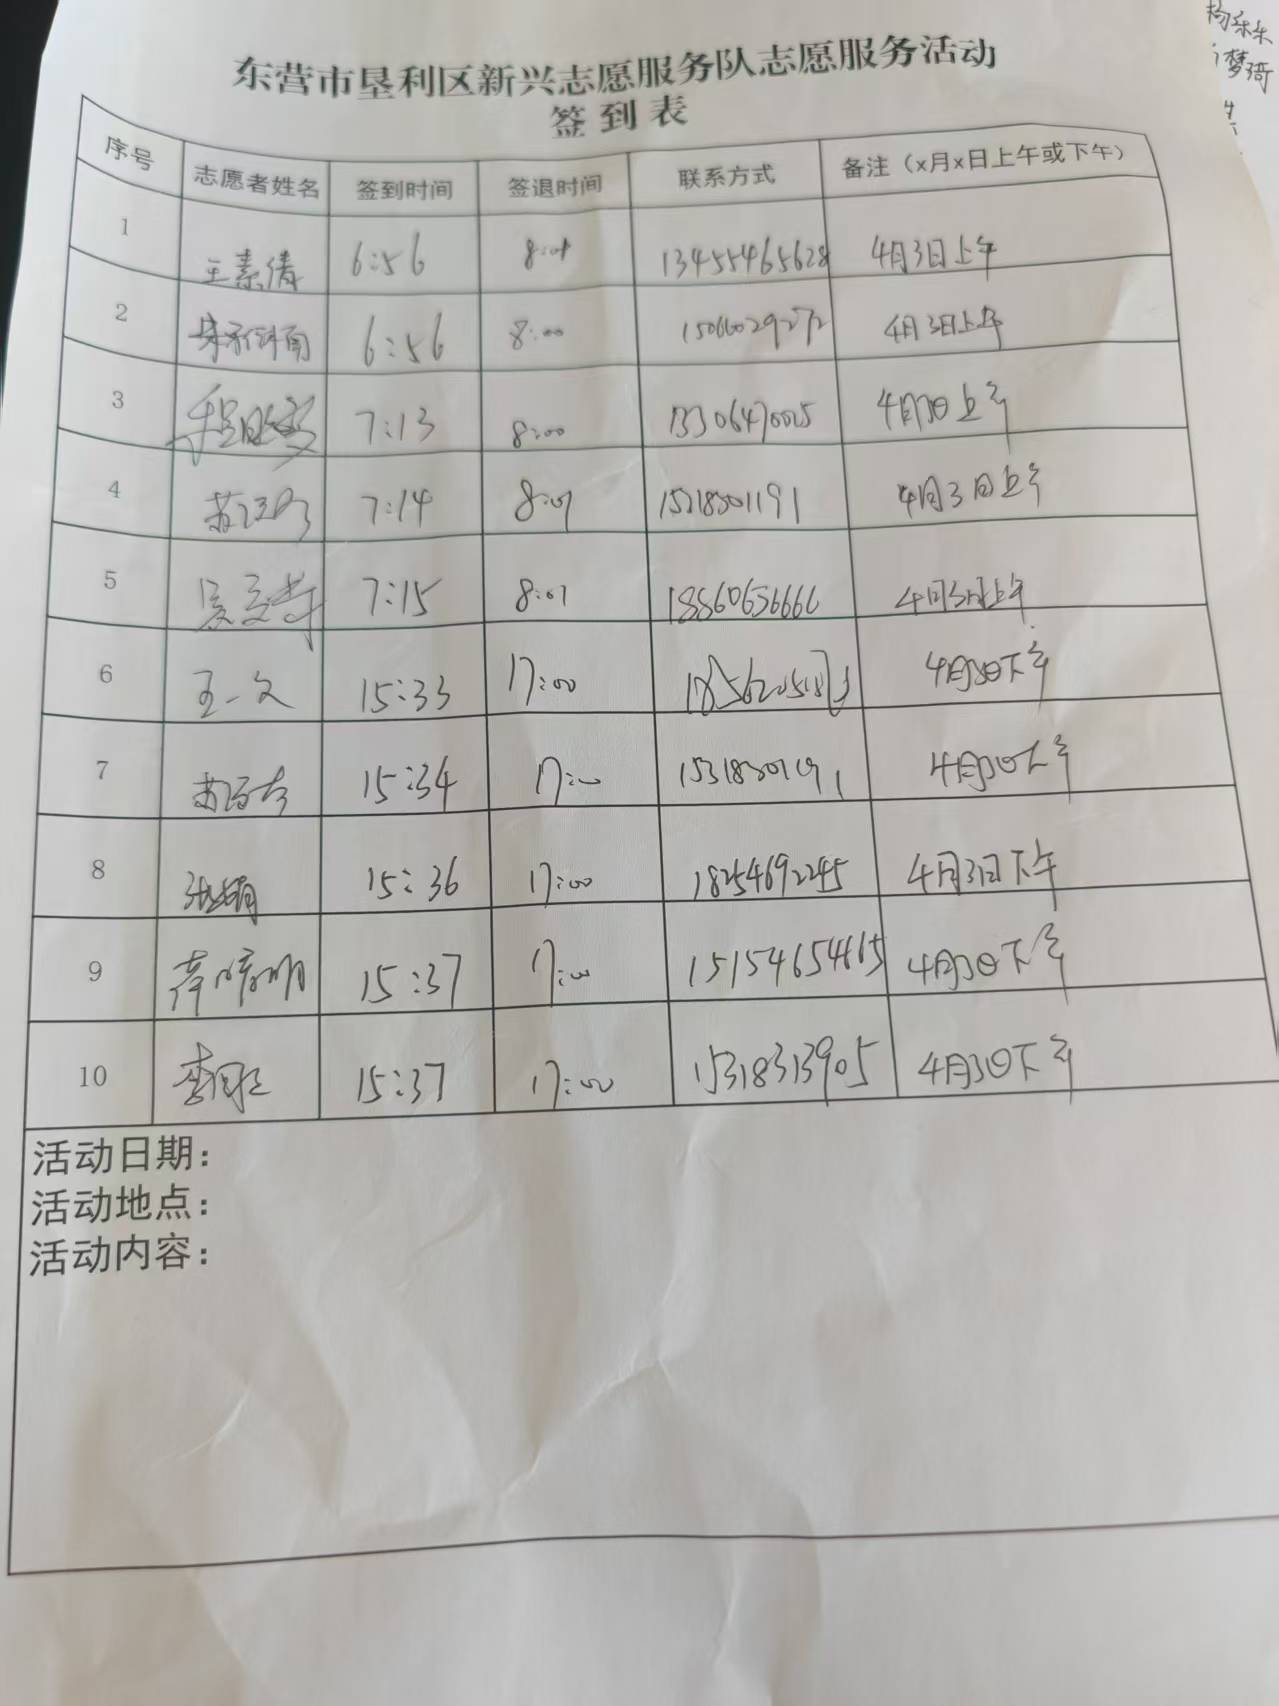 东营市垦利区新兴志愿服务队志愿服务活动
签到表
序号 志愿者姓名 签到时间 签退时间 联系方式 备注（x月x日上午或下午）
1 王素倩 6:56 8:01 13455465628 4月3日上午
2 6:56 8:00 15066029272 4月3日上午
3 7:13 8:00 13306470025 4月3日上午
4 7:14 8:01 4月3日上午
5 7:15 8:01 18860656666 4月3日上午
6 王一文 15:33 17:00 4月3日下午
7 15:34 17:00 4月3日下午
8 张娟 15:36 17:00 18254692245 4月3日下午
9 15:37 17:00 15154654665 4月3日下午
10 15:37 17:00 15318313905 4月3日下午
活动日期：
活动地点：
活动内容：